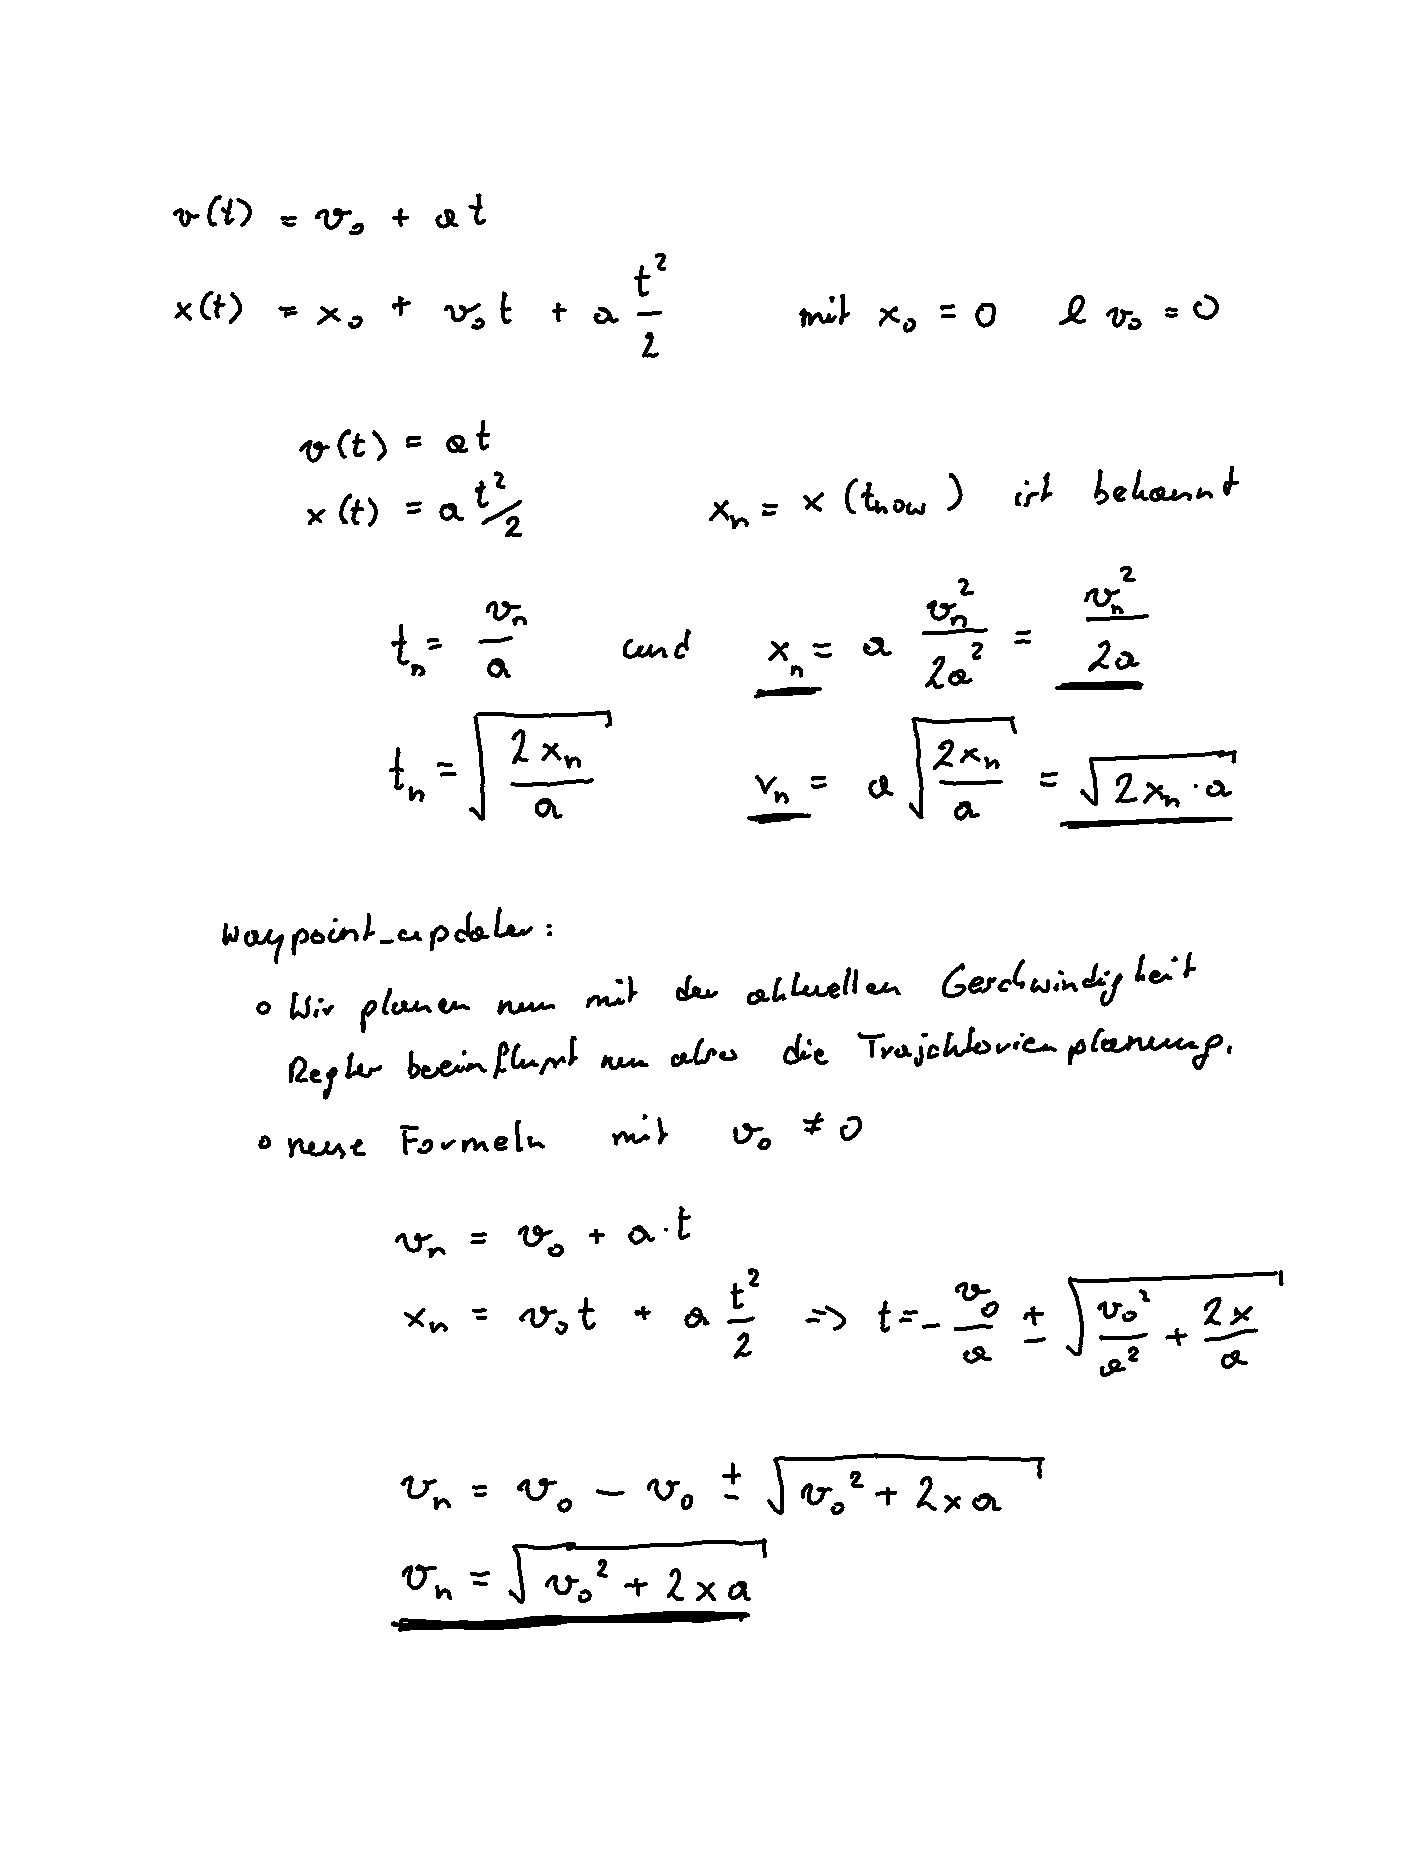 v(t) = v₀ + at
x(t) = x₀ + v₀t + a t²/2 mit x₀ = 0 & v₀ = 0
v(t) = at
x(t) = a t²/2 xₙ = x(t_now) ist bekannt
tₙ = vₙ/a und xₙ = a vₙ²/2a² = vₙ²/2a
tₙ = √(2xₙ/a) vₙ = a √(2xₙ/a) = √(2xₙ·a)
waypoint_updater:
o Wir planen nun mit der aktuellen Geschwindigkeit
Regler beeinflusst nun also die Trajektorienplanung.
o neue Formeln mit v₀ ≠ 0
vₙ = v₀ + a·t
xₙ = v₀t + a t²/2 => t = -v₀/a ± √(v₀²/a² + 2x/a)
vₙ = v₀ - v₀ ± √(v₀² + 2xa)
vₙ = √(v₀² + 2xa)